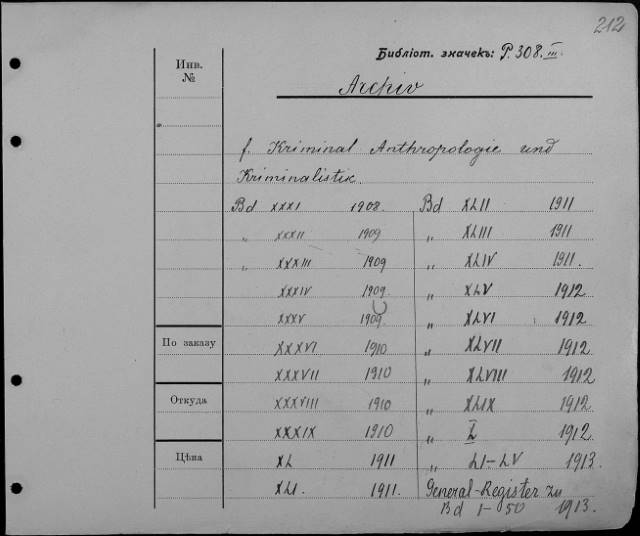 212
Библіот. значекъ: P. 308. III.
Инв. №
Archiv
f. Kriminal Anthropologie und
Kriminalistik.
Bd XXXI 1908. Bd XLII 1911
„ XXXII 1909 „ XLIII 1911
„ XXXIII 1909 „ XLIV 1911.
XXXIV 1909. „ XLV 1912
XXXV 1909 „ XLVI 1912
По заказу
XXXVI 1910 „ XLVII 1912
XXXVII 1910 „ XLVIII 1912
Откуда
XXXVIII 1910 „ XLIX 1912
XXXIX 1910 „ L 1912.
Цѣна
XL 1911 „ LI-LV 1913.
XLI. 1911. General-Register zu
Bd 1-50 1913.